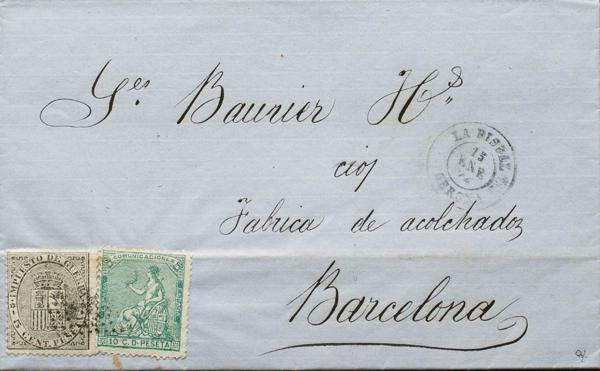 Sres Baunier Hs.
cioj
Fabrica de acolchados
Barcelona
LA BISBAL
15
ENE
74
GERONA
IMPUESTO DE GUERRA
5 CENT. PESETA
COMUNICACIONES
10 C. D. PESETA